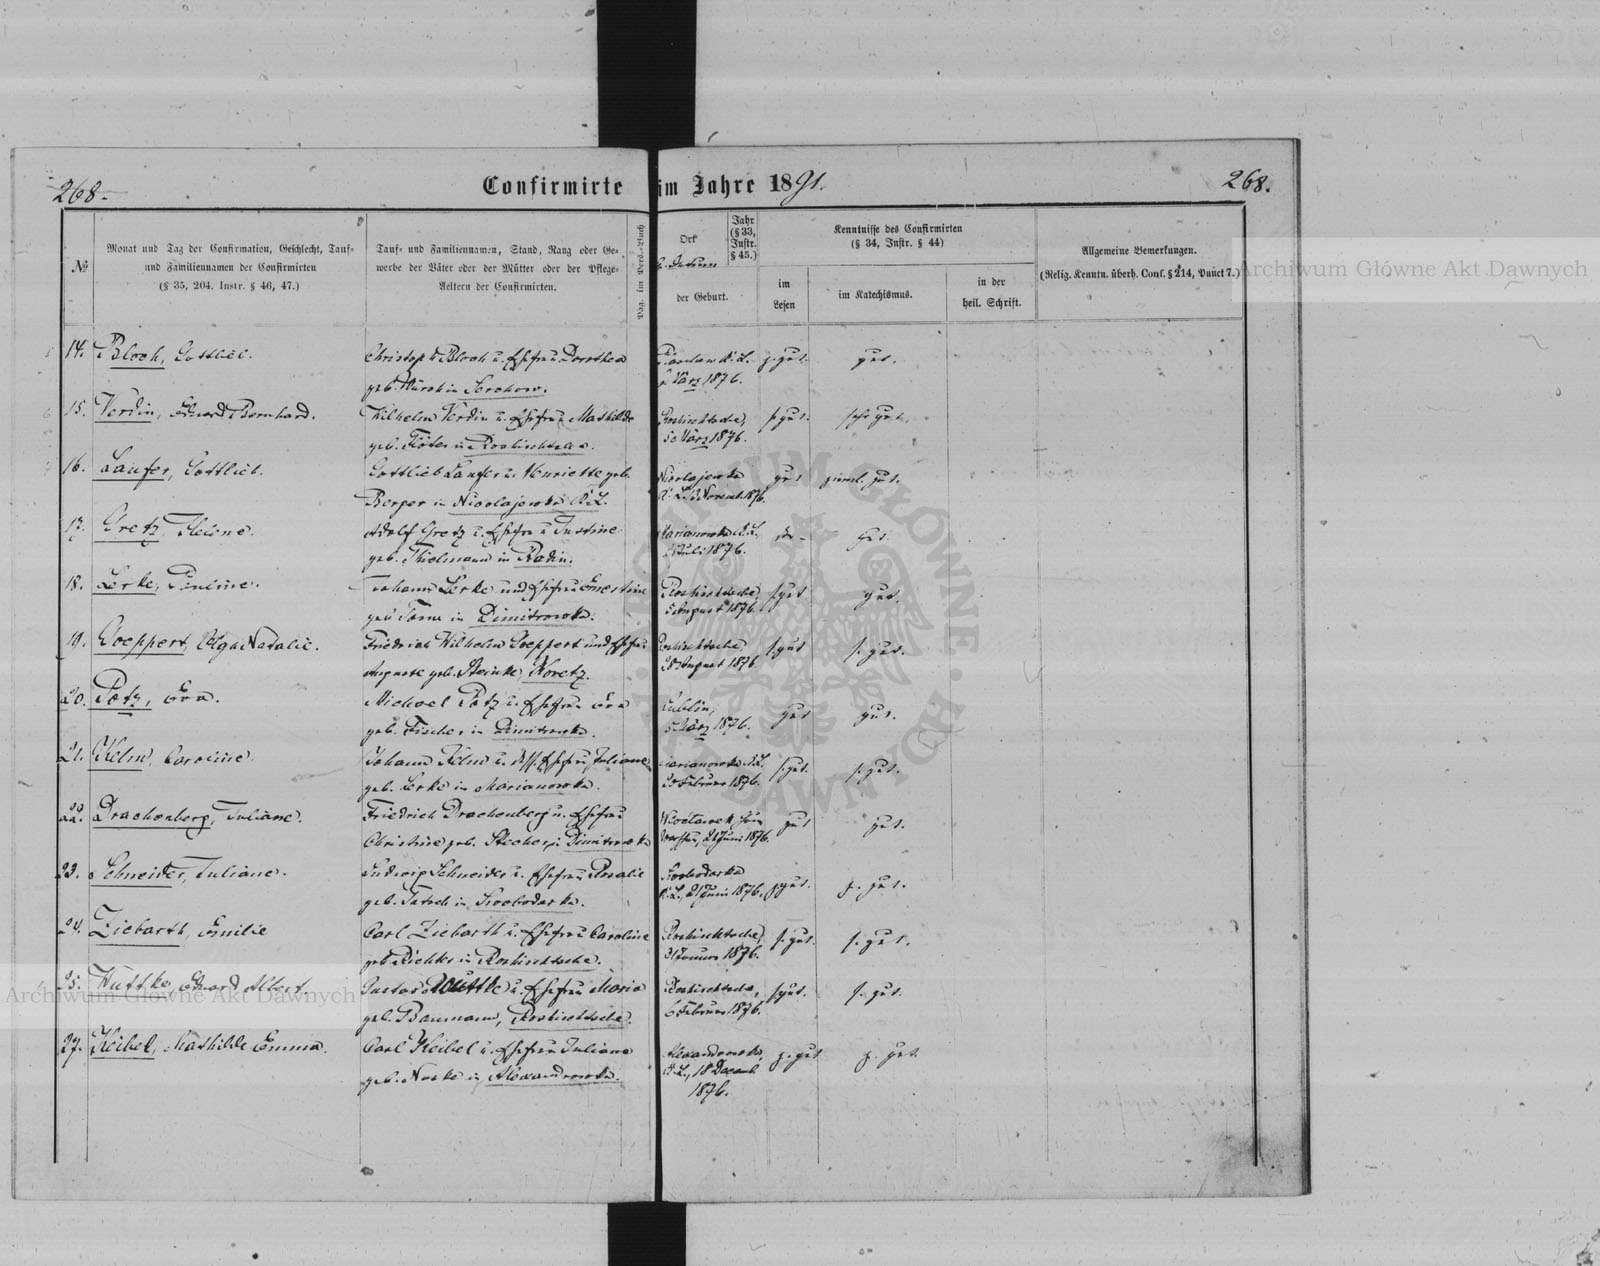 268.
Confirmirte im Jahre 1891.
268.
№
Monat und Tag der Confirmation, Geschlecht, Tauf-
und Familiennamen der Confirmirten
(§ 35, 204. Instr. § 46, 47.)
Tauf- und Familiennamen, Stand, Rang oder Ge-
werbe der Väter oder der Mütter oder der Pflege-
Aeltern der Confirmirten.
Pag. im Pers.-Buch
Ort
u. Datum
der Geburt.
Jahr
(§ 33,
Instr.
§ 45.)
Kenntnisse des Confirmirten
(§ 34, Instr. § 44)
im
Lesen
im Katechismus.
in der
heil. Schrift.
Allgemeine Bemerkungen.
(Relig. Kenntn. überh. Conf. § 214, Punct 7.)
14. Bloch, Gottlieb.
Christoph Bloch u. Ehefrau Dorothea
geb. in
März 1876.
z. gut.
gut.
15. Verdin, Eduard Bernhard.
Wilhelm Verdin u. Ehefrau Mathilde
geb. in Roshischtsche.
Roshischtsche,
März 1876.
s. gut.
sehr gut.
16. Laufer, Gottlieb.
Gottlieb Laufer u. Henriette geb.
Berger in Nicolajewka K. L.
Nicolajewka
K. L. Novemb. 1876.
gut
ziml. gut.
17. Gretz, Helene.
Adolf Gretz u. Ehefrau Justine
geb. Thielmann in
Marianowka K. L.
Juli 1876.
gut
18. Lerke, Pauline.
Johann Lerke und Ehefrau Ernestine
geb. in Dimitrowka.
Roshischtsche,
August 1876.
s. gut
gut.
19. Goeppert, Olga Natalie.
Friedrich Wilhelm Goeppert und Ehefrau
Auguste geb. Steinke, Koretz.
Roshischtsche,
28 August 1876.
s. gut
s. gut.
20. Potz, Eva.
Michael Potz u. Ehefrau Eva
geb. Fischer in Dimitrowka.
Lublin,
März 1876.
gut
gut.
21. Kelm, Caroline.
Johann Kelm u. Ehefrau Juliane
geb. Lerke in Marianowka.
Marianowka K. L.
Februar 1876.
s. gut.
s. gut.
22. Drachenberg, Juliane.
Friedrich Drachenberg u. Ehefrau
Christine geb. Stecher, in Dimitrowka
21 Juni 1876.
gut
gut.
23. Schneider, Juliane.
Ludwig Schneider u. Ehefrau Rosalie
geb. in Swobodarka.
Swobodarka
K. L., 21 Juni 1876.
z. gut.
z. gut.
24. Ziebarth, Emilie
Carl Ziebarth u. Ehefrau Caroline
geb. Richter in Roshischtsche.
Roshischtsche,
31 Januar 1876.
s. gut.
s. gut.
25. Wuttke, Eduard Albert.
Gustav Wuttke u. Ehefrau Maria
geb. Baumann, Roshischtsche.
Roshischtsche,
6 Februar 1876.
s. gut.
s. gut.
27. Keibel, Mathilde Emma.
Carl Keibel u. Ehefrau Juliana
geb. Noske in Alexandrowka.
Alexandrowka,
K. L., 18 Decemb.
1876.
z. gut
z. gut.
Archiwum Główne Akt Dawnych
Archiwum Główne Akt Dawnych
ARCHIWUM GŁÓWNE AKT DAWNYCH